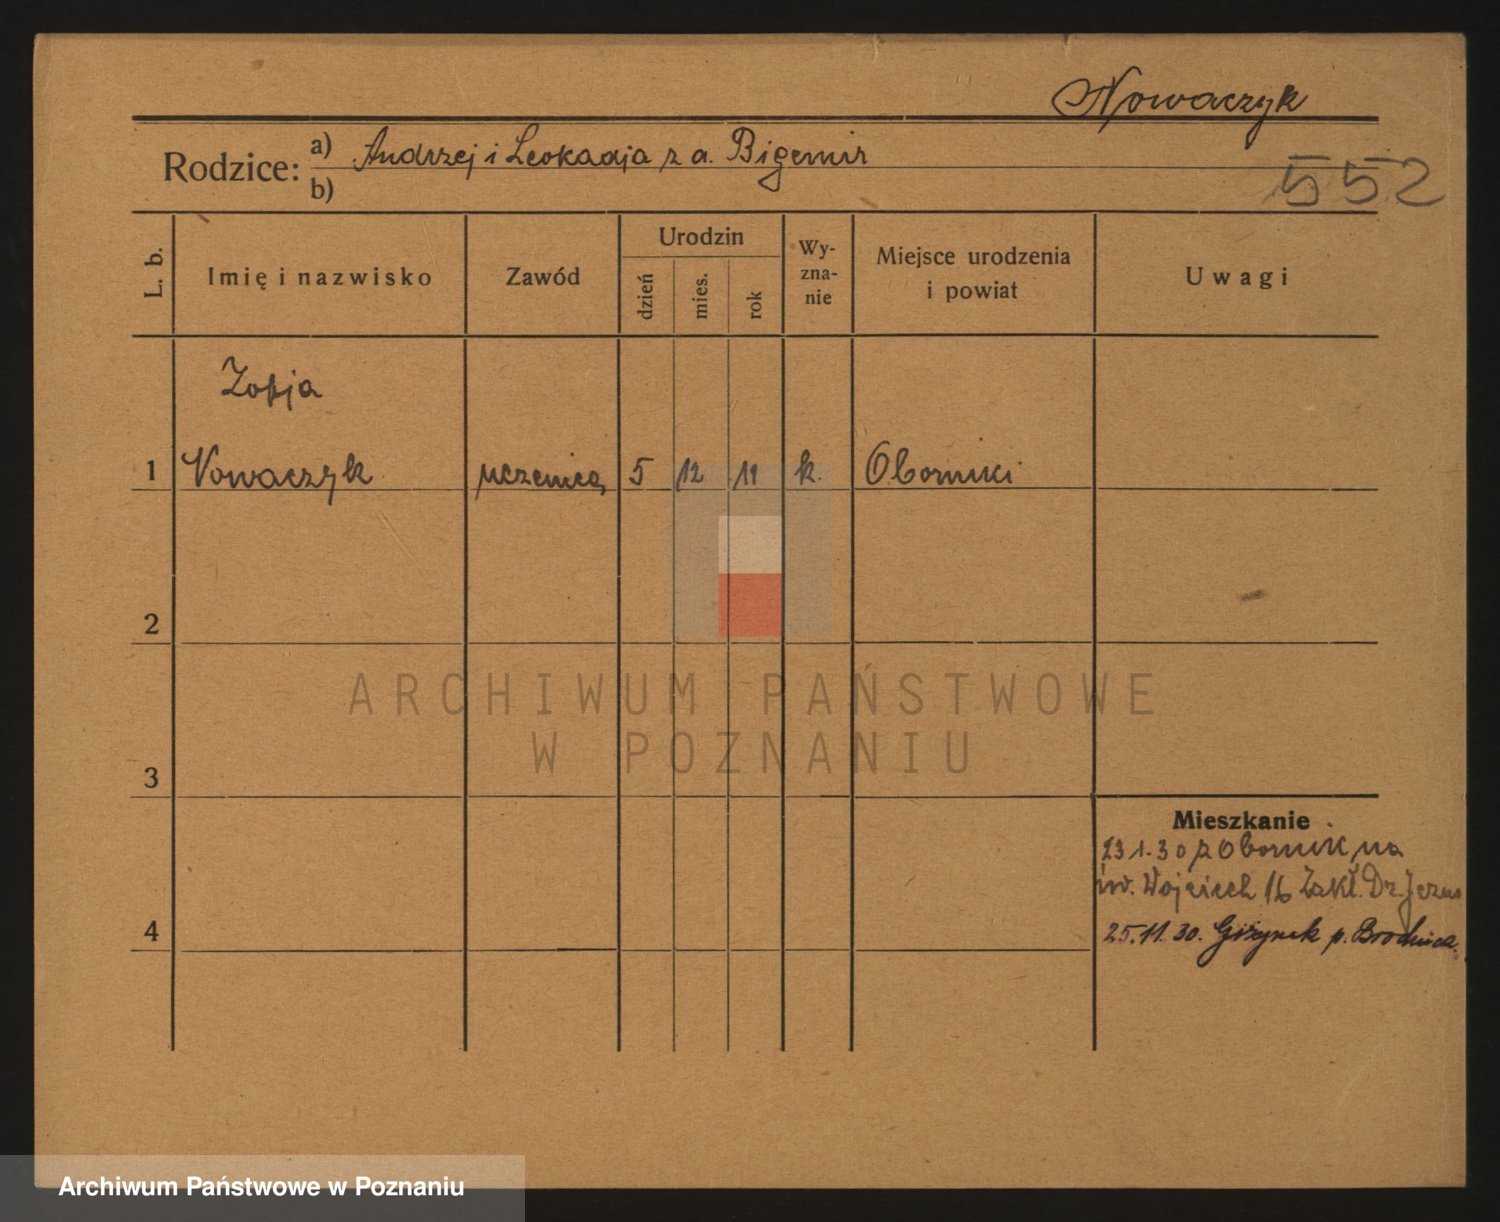 Nowaczyk
Rodzice: a) Andrzej i Leokadja z d. Bigemir
b)
552
L. b.
Imię i nazwisko
Zawód
Urodzin
dzień
mies.
rok
Wy-
zna-
nie
Miejsce urodzenia
i powiat
Uwagi
Zofja
1 Nowaczyk uczenica 5 12 11 k. Oborniki
2
3
4
Mieszkanie
23 1.30 z Obornik na
św. Wojciech 16 Zakł. Dz. Jezus
25.11.30. Giżynek p. Brodnica
ARCHIWUM PAŃSTWOWE
W POZNANIU
Archiwum Państwowe w Poznaniu